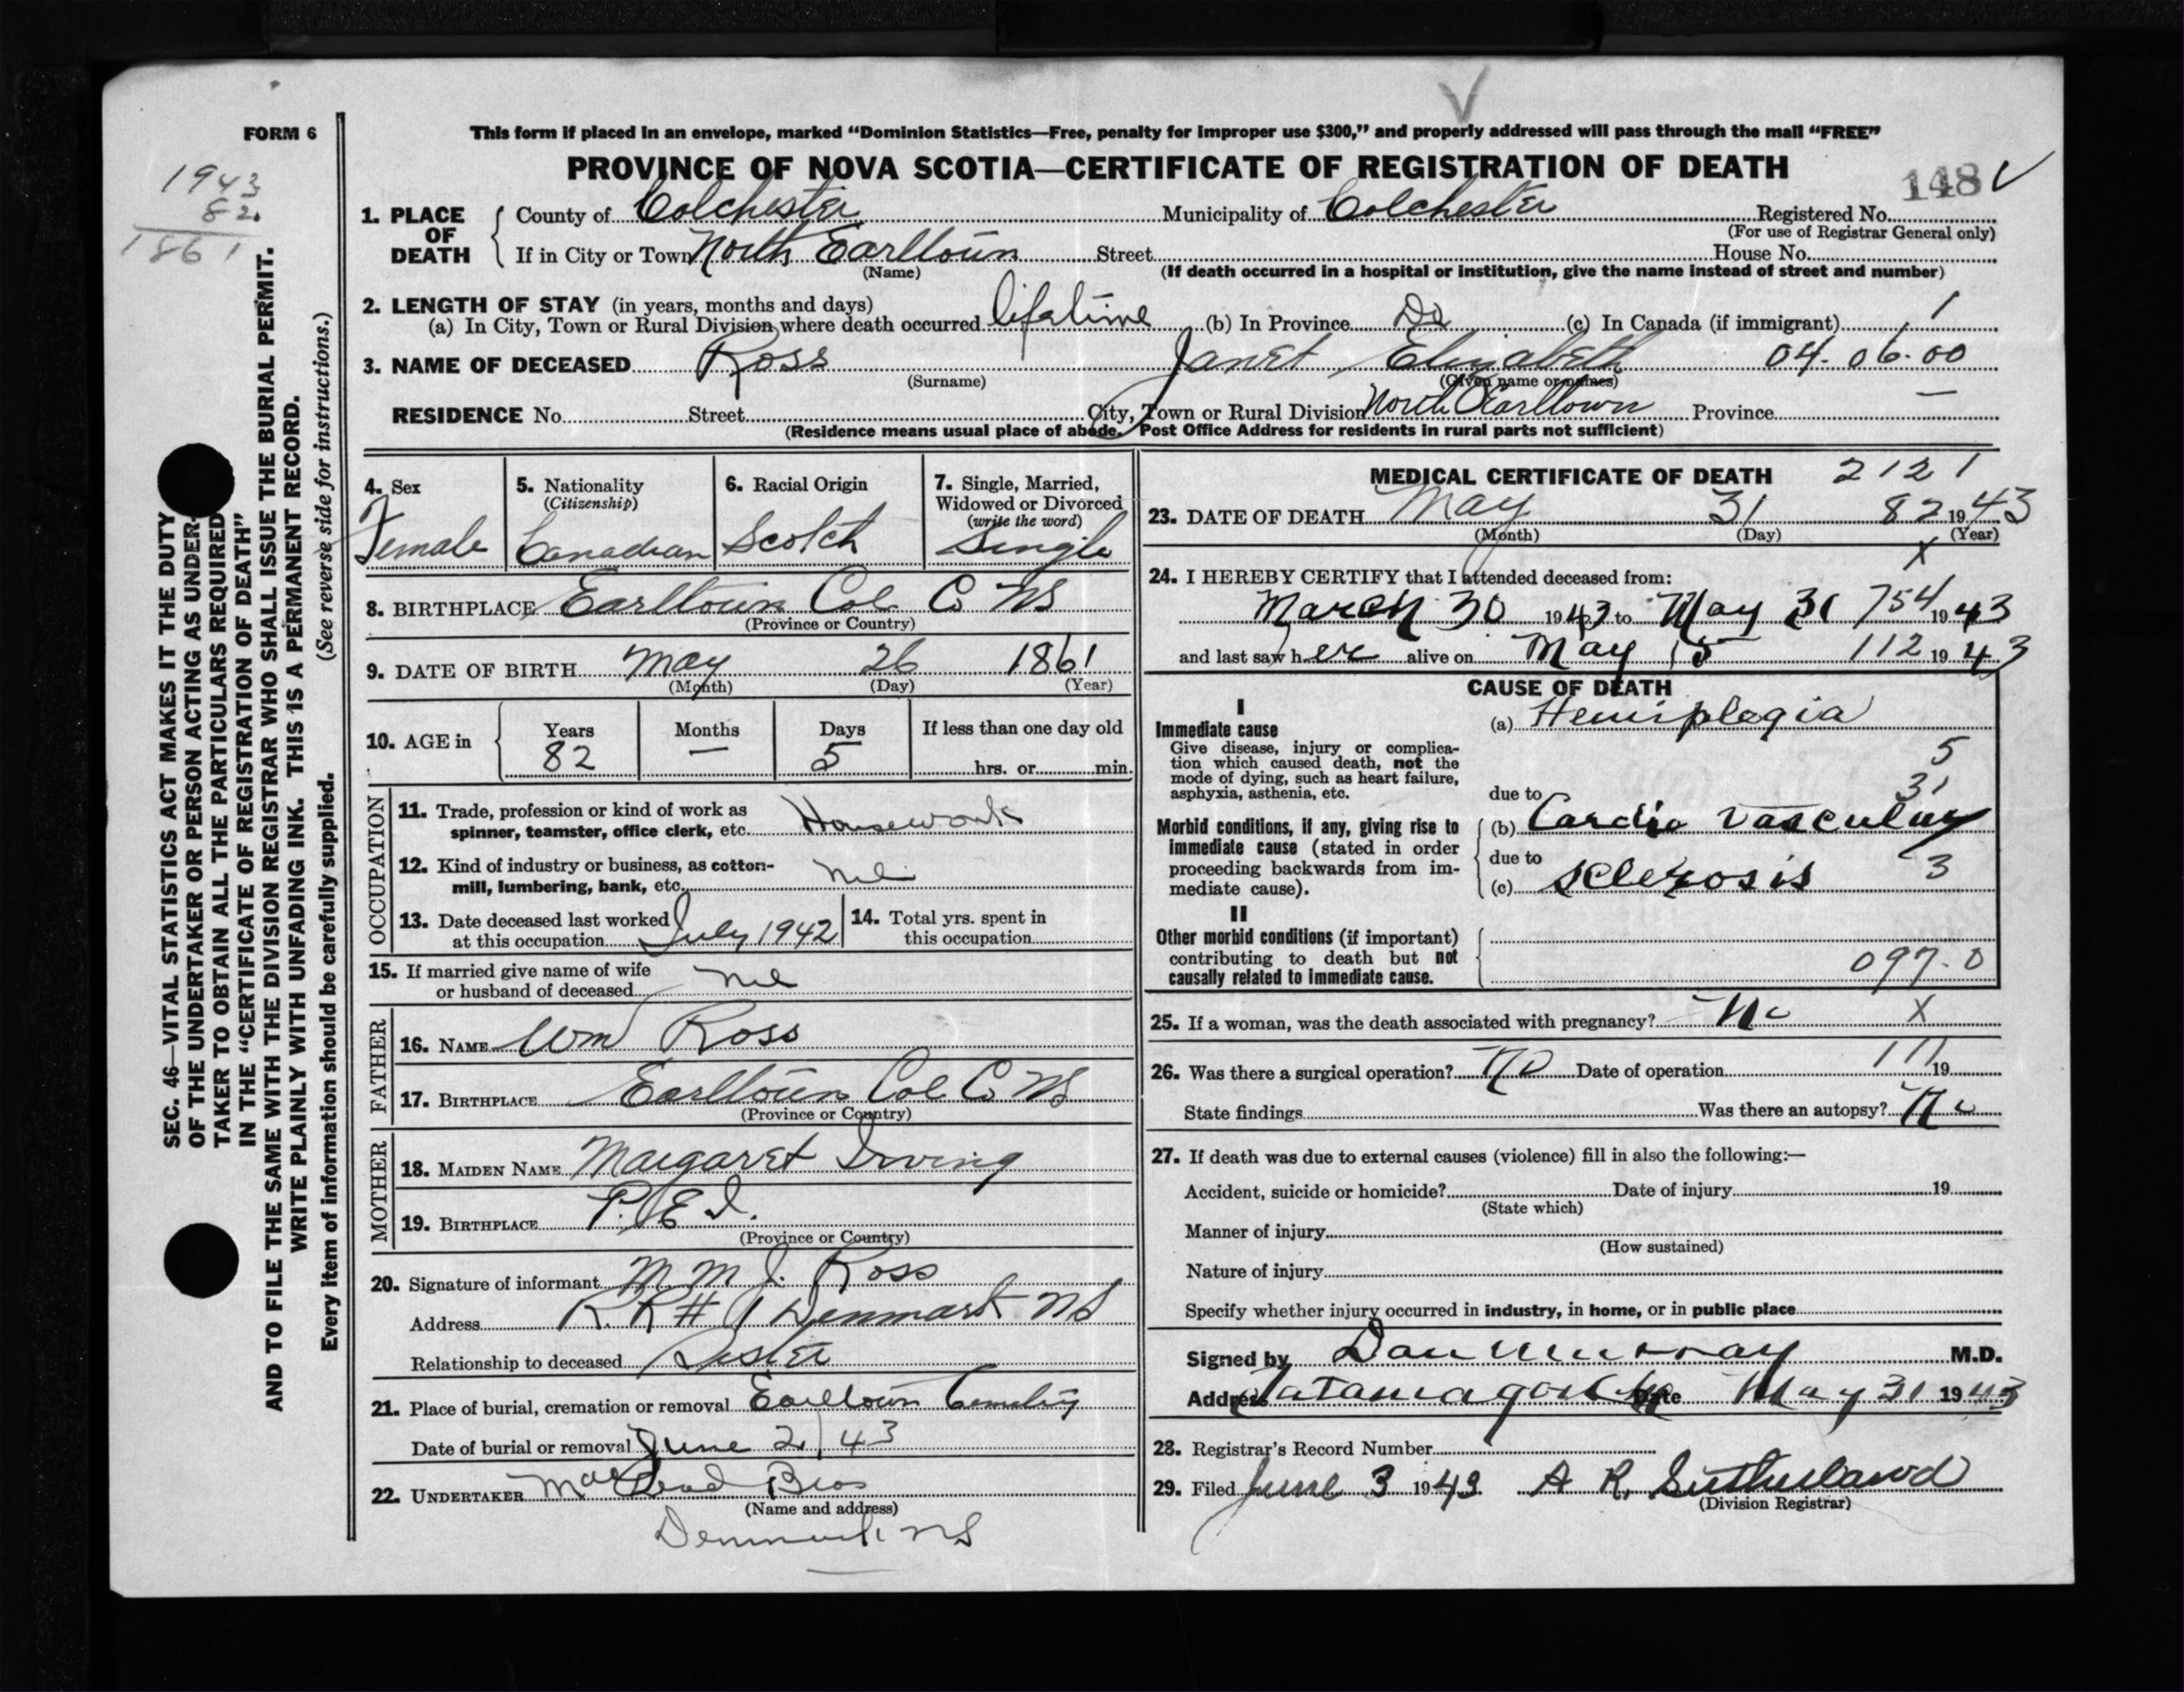 FORM 6
This form if placed in an envelope, marked “Dominion Statistics—Free, penalty for improper use $300,” and properly addressed will pass through the mail “FREE”
PROVINCE OF NOVA SCOTIA—CERTIFICATE OF REGISTRATION OF DEATH
1943
82
1861
148
1. PLACE OF DEATH
County of Colchester Municipality of Colchester Registered No.
(For use of Registrar General only)
If in City or Town North Earltown Street House No.
(Name) (If death occurred in a hospital or institution, give the name instead of street and number)
2. LENGTH OF STAY (in years, months and days)
(a) In City, Town or Rural Division where death occurred lifetime (b) In Province Do (c) In Canada (if immigrant) 1
3. NAME OF DECEASED Ross Janet Elizabeth 04-06-00
(Surname) (Given name or names)
RESIDENCE No. Street City, Town or Rural Division North Earltown Province —
(Residence means usual place of abode. Post Office Address for residents in rural parts not sufficient)
4. Sex
Female
5. Nationality
(Citizenship)
Canadian
6. Racial Origin
Scotch
7. Single, Married,
Widowed or Divorced
(write the word)
Single
8. BIRTHPLACE Earltown Col. Co NS
(Province or Country)
9. DATE OF BIRTH May 26 1861
(Month) (Day) (Year)
10. AGE in
Years Months Days If less than one day old
82 — 5 hrs. or min.
OCCUPATION
11. Trade, profession or kind of work as
spinner, teamster, office clerk, etc. Housework
12. Kind of industry or business, as cotton-
mill, lumbering, bank, etc. nil
13. Date deceased last worked
at this occupation July 1942
14. Total yrs. spent in
this occupation
15. If married give name of wife
or husband of deceased nil
FATHER
16. NAME Wm Ross
17. BIRTHPLACE Earltown Col. Co NS
(Province or Country)
MOTHER
18. MAIDEN NAME Margaret Irving
19. BIRTHPLACE P.E.I.
(Province or Country)
20. Signature of informant M M J. Ross
Address R. R # 1 Denmark NS
Relationship to deceased Sister
21. Place of burial, cremation or removal Earltown Cemetery
Date of burial or removal June 2/43
22. UNDERTAKER Bros
(Name and address)
Denmark NS
MEDICAL CERTIFICATE OF DEATH 2121
23. DATE OF DEATH May 31 82 1943
(Month) (Day) (Year)
X
24. I HEREBY CERTIFY that I attended deceased from:
March 30 1943 to May 31 754 1943
and last saw her alive on May 15 112 1943
CAUSE OF DEATH
I
Immediate cause
Give disease, injury or complica-
tion which caused death, not the
mode of dying, such as heart failure,
asphyxia, asthenia, etc.
(a) Hemiplegia
5
31
due to
Morbid conditions, if any, giving rise to
immediate cause (stated in order
proceeding backwards from im-
mediate cause).
(b) Cardio Vascular
due to 3
(c) Sclerosis
II
Other morbid conditions (if important)
contributing to death but not
causally related to immediate cause.
097-0
25. If a woman, was the death associated with pregnancy? No X
26. Was there a surgical operation? No Date of operation 19
State findings Was there an autopsy? No
27. If death was due to external causes (violence) fill in also the following:—
Accident, suicide or homicide? Date of injury 19
(State which)
Manner of injury
(How sustained)
Nature of injury
Specify whether injury occurred in industry, in home, or in public place
Signed by Dan Murray M.D.
Address Tatamagouche Date May 31 1943
28. Registrar's Record Number
29. Filed June 3 1943 A R. Sutherland
(Division Registrar)
SEC. 46—VITAL STATISTICS ACT MAKES IT THE DUTY
OF THE UNDERTAKER OR PERSON ACTING AS UNDER-
TAKER TO OBTAIN ALL THE PARTICULARS REQUIRED
IN THE “CERTIFICATE OF REGISTRATION OF DEATH”
AND TO FILE THE SAME WITH THE DIVISION REGISTRAR WHO SHALL ISSUE THE BURIAL PERMIT.
WRITE PLAINLY WITH UNFADING INK. THIS IS A PERMANENT RECORD.
Every item of information should be carefully supplied. (See reverse side for instructions.)